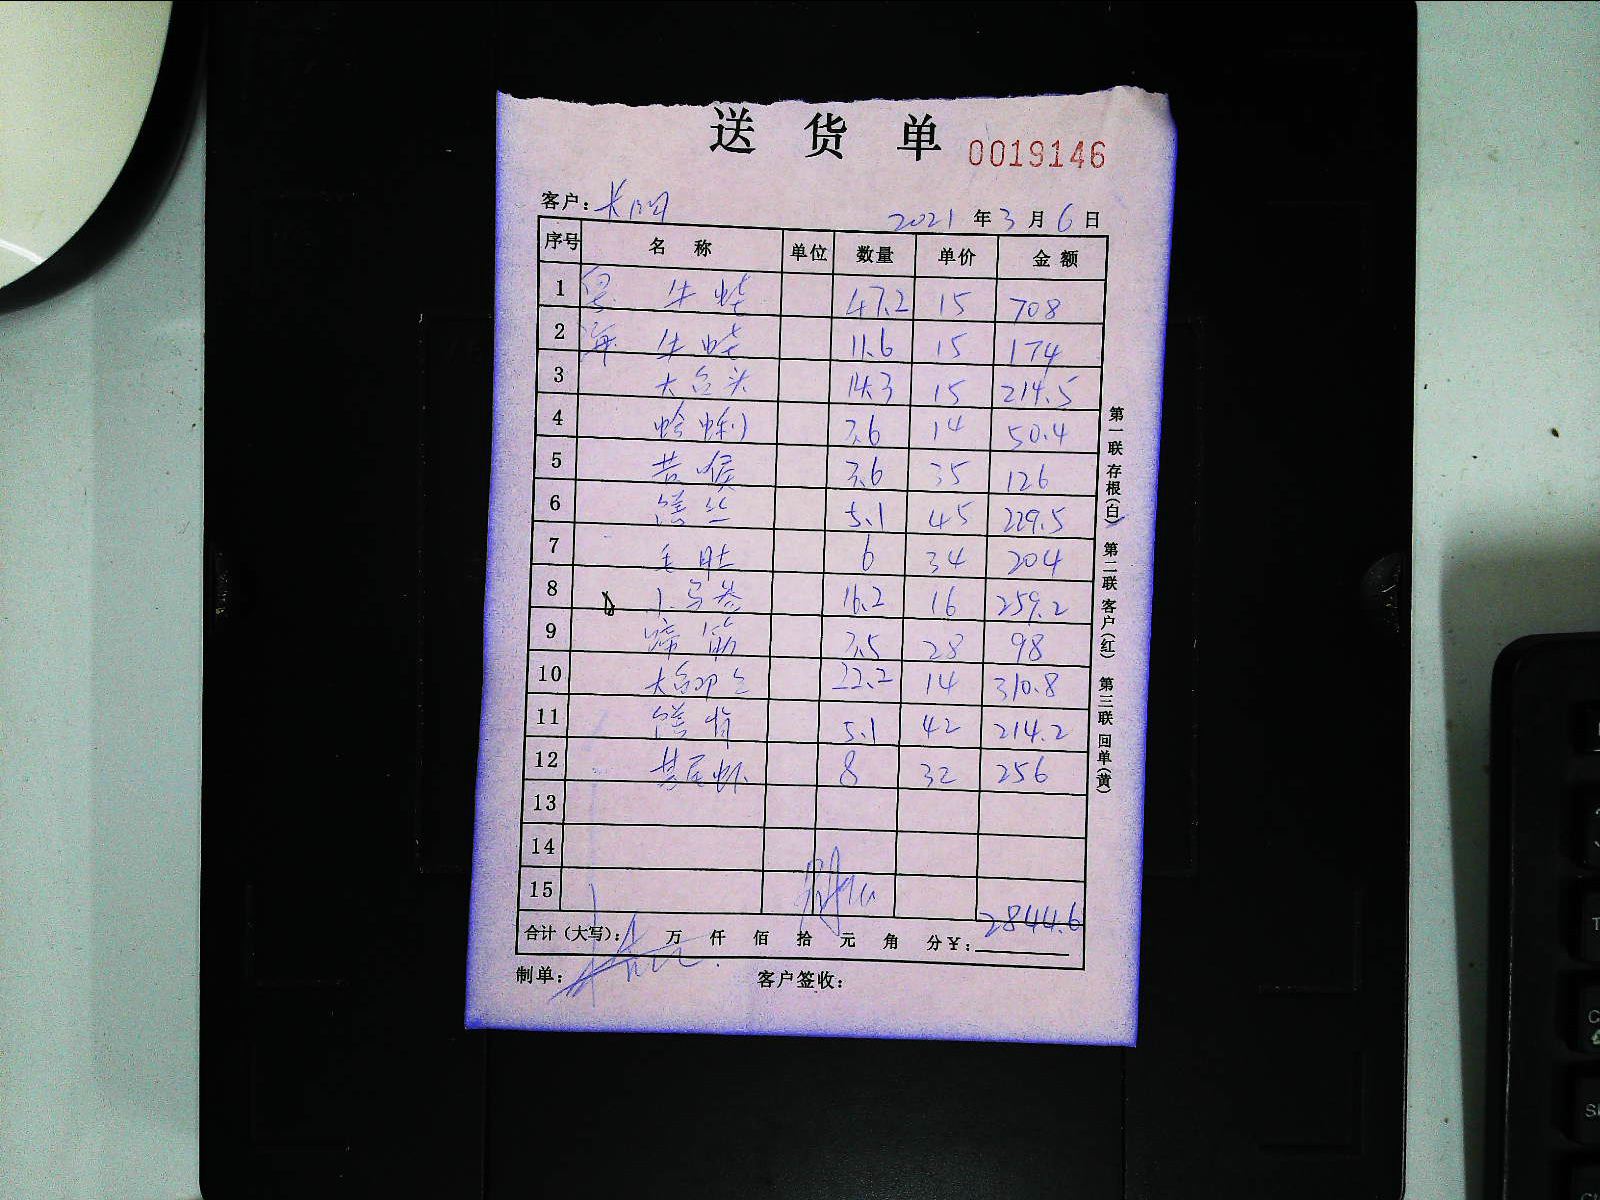 送货单 0019146
客户： 2021 年 3 月 6 日
序号 名称 单位 数量 单价 金额
1 牛蛙 47.2 15 708
2 海 牛蛙 11.6 15 174
3 大台头 14.3 15 214.5
4 蛤蜊 3.6 14 50.4
5 黄喉 3.6 35 126
6 5.1 45 229.5
7 毛肚 6 34 204
8 小 16.2 16 259.2
9 蹄筋 3.5 28 98
10 大 22.2 14 310.8
11 5.1 42 214.2
12 基尾虾 8 32 256
13
14
15 2844.6
合计（大写）： 万 仟 佰 拾 元 角 分 ¥：
制单： 客户签收：
第一联 存根（白） 第二联 客户（红） 第三联 回单（黄）